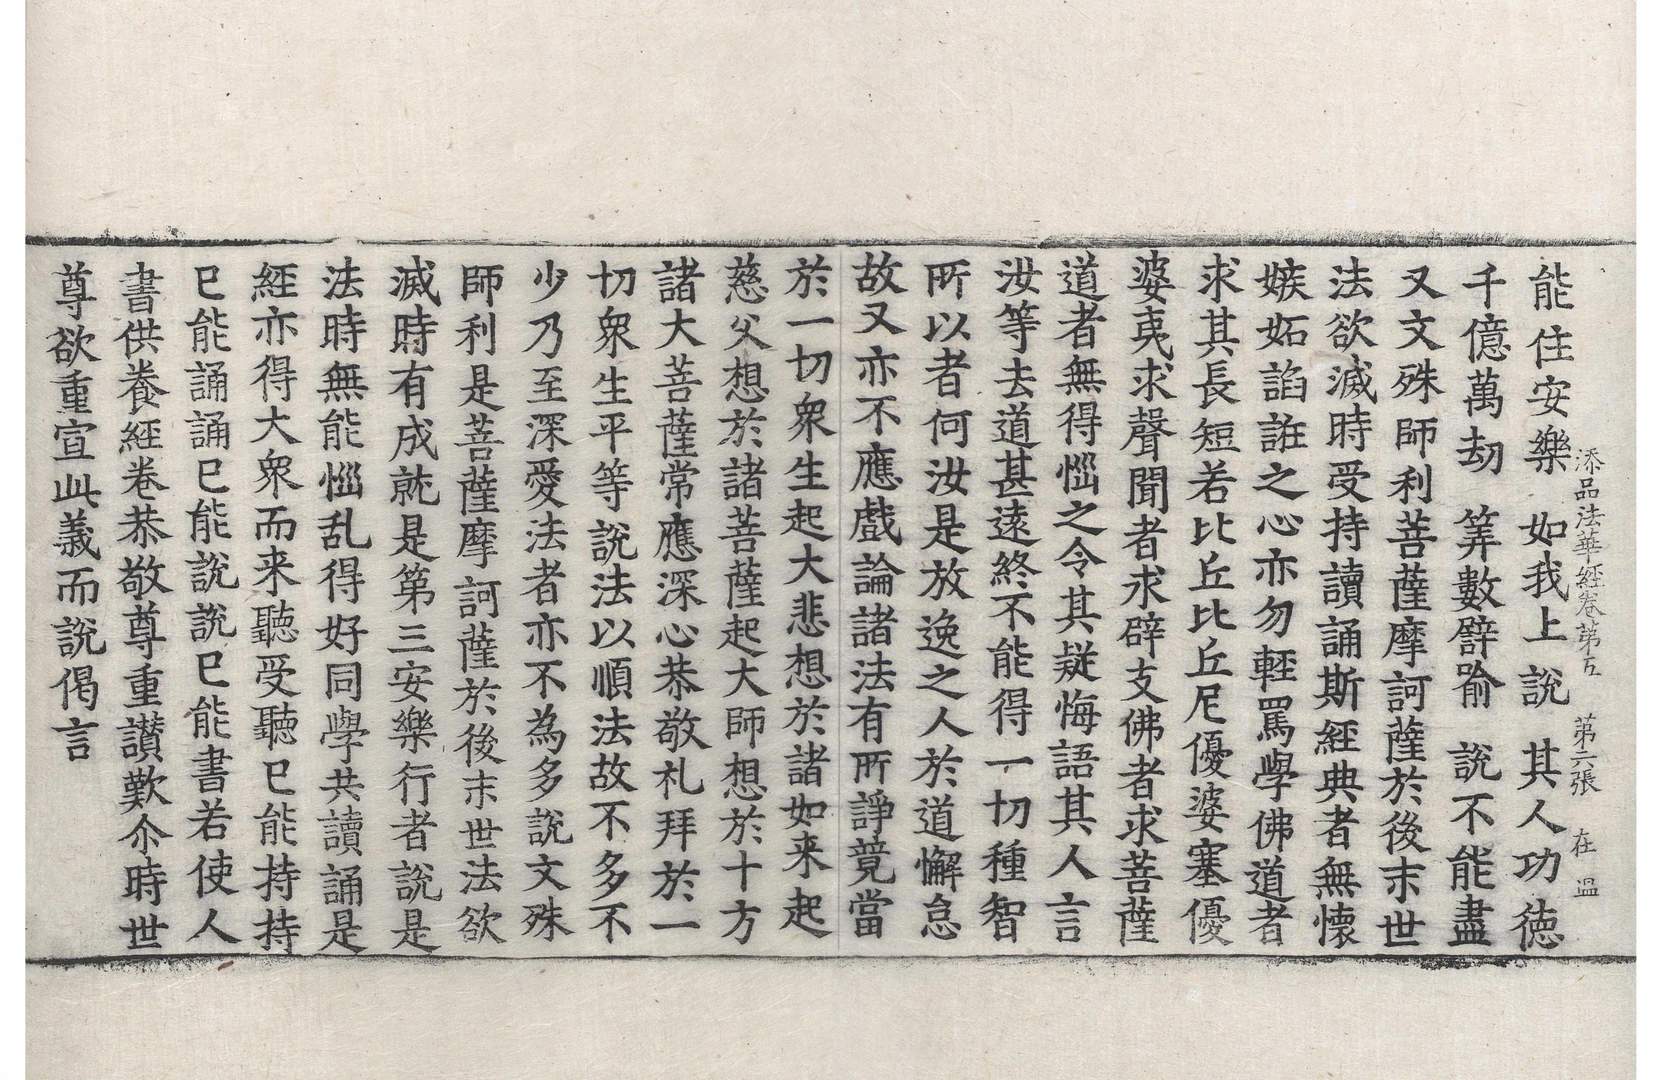 添品法華經卷第五 第六張 在 㒼
能住安樂 如我上說 其人功徳
千億萬劫 筭數譬喻 說不能盡
又文殊師利菩薩摩訶薩於後末世
法欲滅時受持讀誦斯經典者無懷
嫉妬諂誑之心亦勿輕罵學佛道者
求其長短若比丘比丘尼優婆塞優
婆夷求聲聞者求辟支佛者求菩薩
道者無得惱之令其疑悔語其人言
汝等去道甚遠終不能得一切種智
所以者何汝是放逸之人於道懈怠
故又亦不應戲論諸法有所諍竟當
於一切衆生起大悲想於諸如来起
慈父想於諸菩薩起大師想於十方
諸大菩薩常應深心恭敬礼拜於一
切衆生平等說法以順法故不多不
少乃至深愛法者亦不為多說文殊
師利是菩薩摩訶薩於後末世法欲
滅時有成就是第三安樂行者說是
法時無能惱乱得好同學共讀誦是
經亦得大衆而来聽受聽已能持持
已能誦誦已能說說已能書若使人
書供養經卷恭敬尊重讃歎尒時世
尊欲重宣此義而說偈言